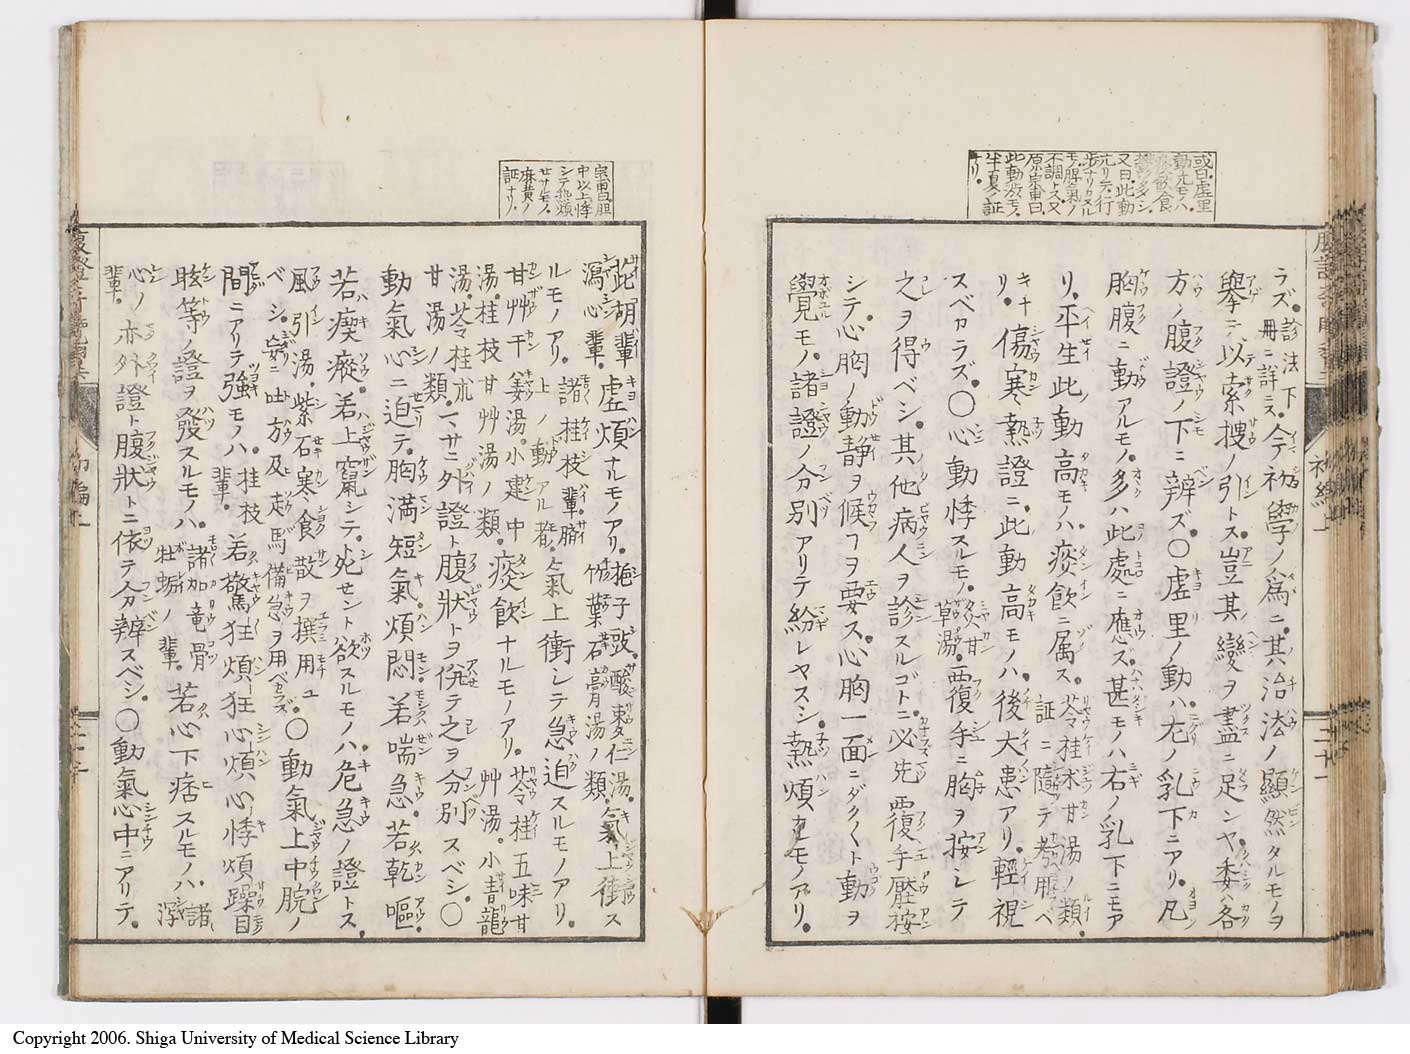 或曰虚里
動尢モノハ
飲食
多シ
又曰此動
亢リテ行
歩ナリカヌル
モノ解氣ノ
不調トス又
原宗東曰
此動亥モノ
半夏ノ証
ナリ
ラズ診法下冊ニ詳ニス今初學ノ爲ニ其治法ノ顯然タルモノヲ
擧テ以索捜ノ引トス豈其變ヲ盡ニ足ンヤ委ハ各
方ノ腹證ノ下ニ辨ズ〇虚里ノ動ハ左ノ乳下ニアリ凡
胸腹ニ動アルモノ多ハ此處ニ應ズ甚モノハ右ノ乳下ニモア
リ平生此動高モノハ痰飲ニ属ス苓桂朮甘湯ノ類証ニ隨テ撰用スベ
キナ傷寒熱證ニ此動高モノハ後大患アリ輕視
スベカラズ〇心動悸スルモノ炙甘草湯覆手ニ胸ヲ按シテ
之ヲ得ベシ其他病人ヲ診スルゴトニ必先覆手壓按
シテ心胸ノ動静ヲ候フヲ要ス心胸一面ニダク〱ト動ヲ
覺モノ諸證ノ分別アリテ紛レヤスシ熱煩カルモノアリ
腹證奇覽翼 初編上
宗東曰胆
中以上悸
シテ熱煩
セサルモノ
麻黄ノ
証ナリ
柴胡輩瀉心輩虚煩ナルモノアリ梔子豉酸棗仁湯竹葉石膏湯ノ類氣上衝ス
ルモノアリ諸桂枝輩臍上ノ動アル者氣上衝シテ急迫スルモノアリ
甘艸干姜湯小建中湯桂枝甘艸湯ノ類痰飲ナルモノアリ苓桂五味甘艸湯小青龍
湯苓桂朮甘湯ノ類マサニ外證ト腹狀トヲ併テ之ヲ分別スベシ〇
動氣心ニ迫テ胸満短氣煩悶若喘急若乾嘔
若瘈瘲若上竄シテ死セント欲スルモノハ危急ノ證トス
風引湯紫石寒食散ヲ撰用ユベシ妄ニ吐方及走馬備急ヲ用ベカラズ〇動氣上中脘ノ
間ニアリテ強モノハ桂枝輩若驚狂煩狂心煩心悸煩躁目
眩等ノ證ヲ發スルモノハ諸加竜骨牡蛎ノ輩若心下痞スルモノハ諸瀉
心ノ輩亦外證ト腹狀トニ依テ分辨スベシ〇動氣心中ニアリテ
腹證奇覽翼 初編上
Copyright 2006. Shiga University of Medical Science Library